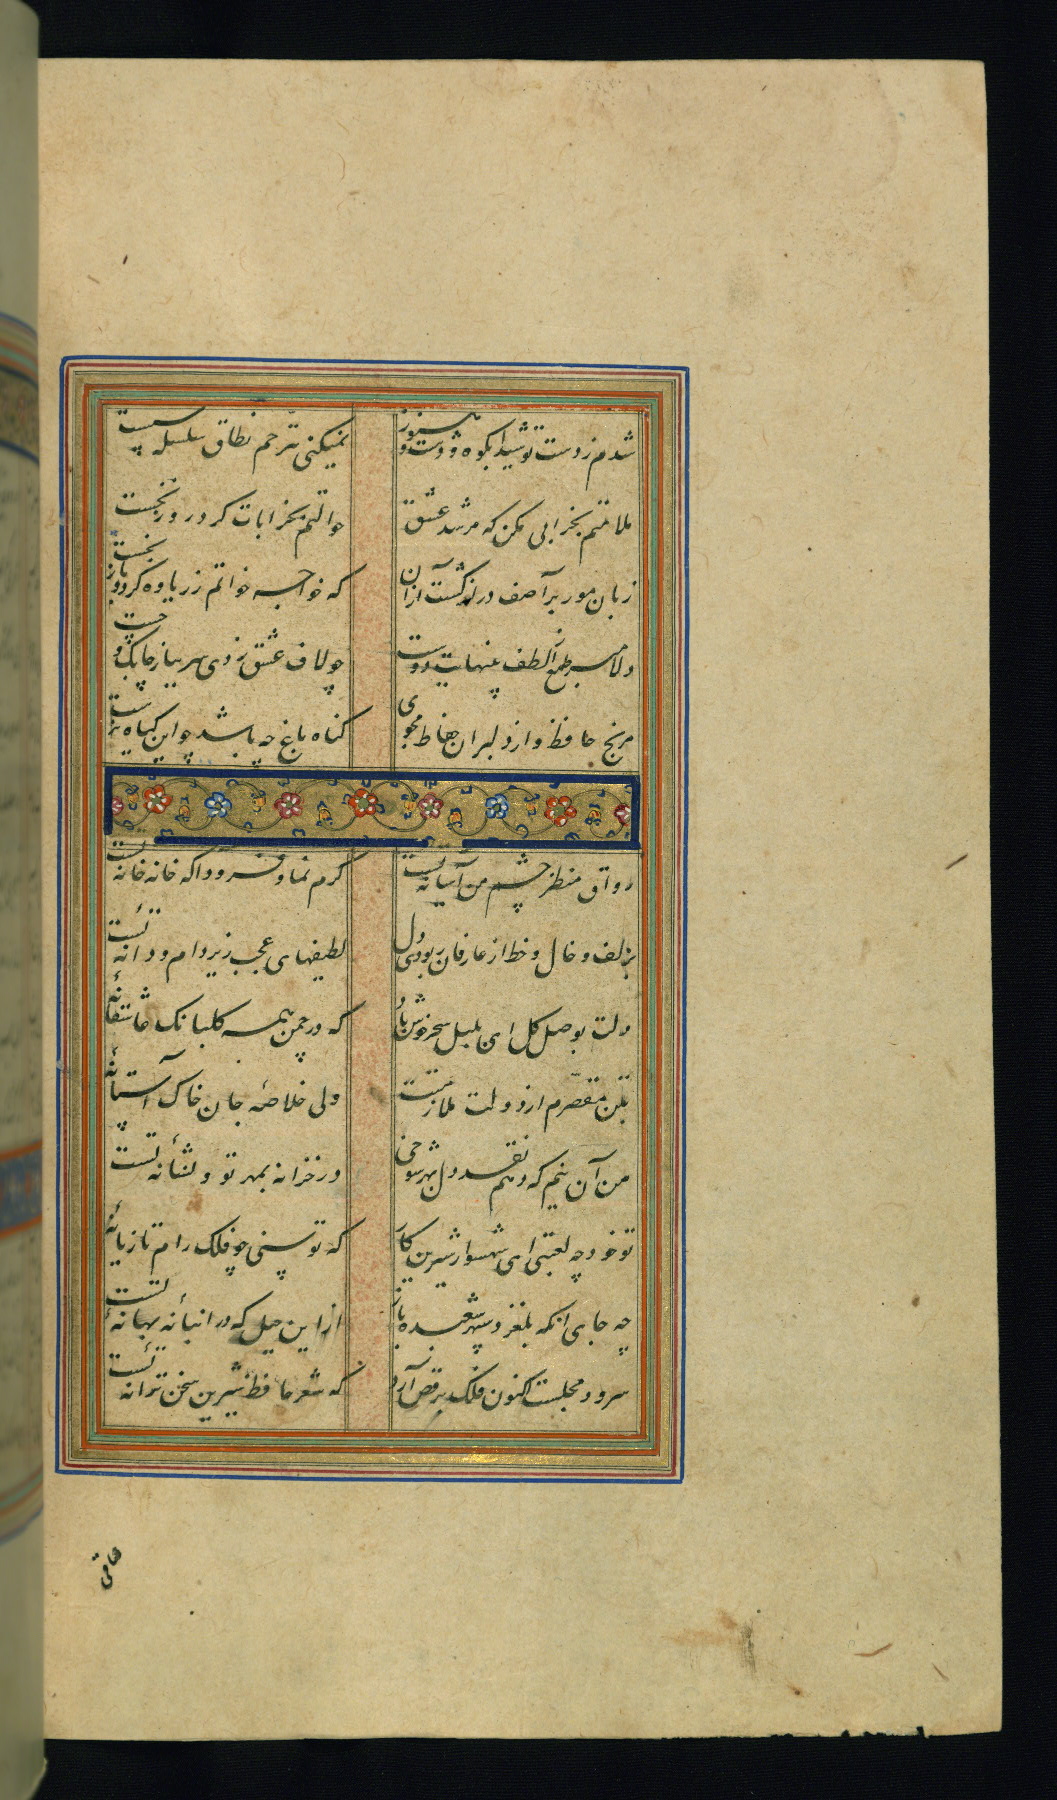 شدم ز دست تو شیدای کوه و دشت و هنوز
نمیکنی بترحم نطاق سلسله سست
ملامتم بخرابی مکن که مرشد عشق
حوالتم بخرابات کرد روز نخست
زبان مور بر آصف دراز گشت از آن
که خواجه خواتم جم یاوه کرد و باز نجست
دلا طمع مبر از لطف بینهایت دوست
چو لاف عشق زدی سر بباز چابک و چست
مرنج حافظ و از دلبران حفاظ مجوی
گناه باغ چه باشد چو این گیاه نرست
رواق منظر چشم من آشیانه تست
کرم نما و فرود آ که خانه خانه تست
بزلف و خال و خط از عارفان ربودی دل
لطیفهای عجب زیر دام و دانه تست
دلت بوصل گل ای بلبل سحر خوش باد
که در چمن همه گلبانگ عاشقانه تست
بتن مقصرم از دولت ملازمتت
ولی خلاصه جان خاک آستانه تست
من آن نیم که دهم نقد دل بهر شوخی
در خزانه بمهر تو و نشانه تست
تو خود چه لعبتی ای شهسوار شیرین کار
که توسنی چو فلک رام تازیانه تست
چه جای من که بلغزد سپهر شعبده باز
از این حیل که در انبانه بهانه تست
سرود مجلست اکنون فلک برقص آرد
که شعر حافظ شیرین سخن ترانه تست